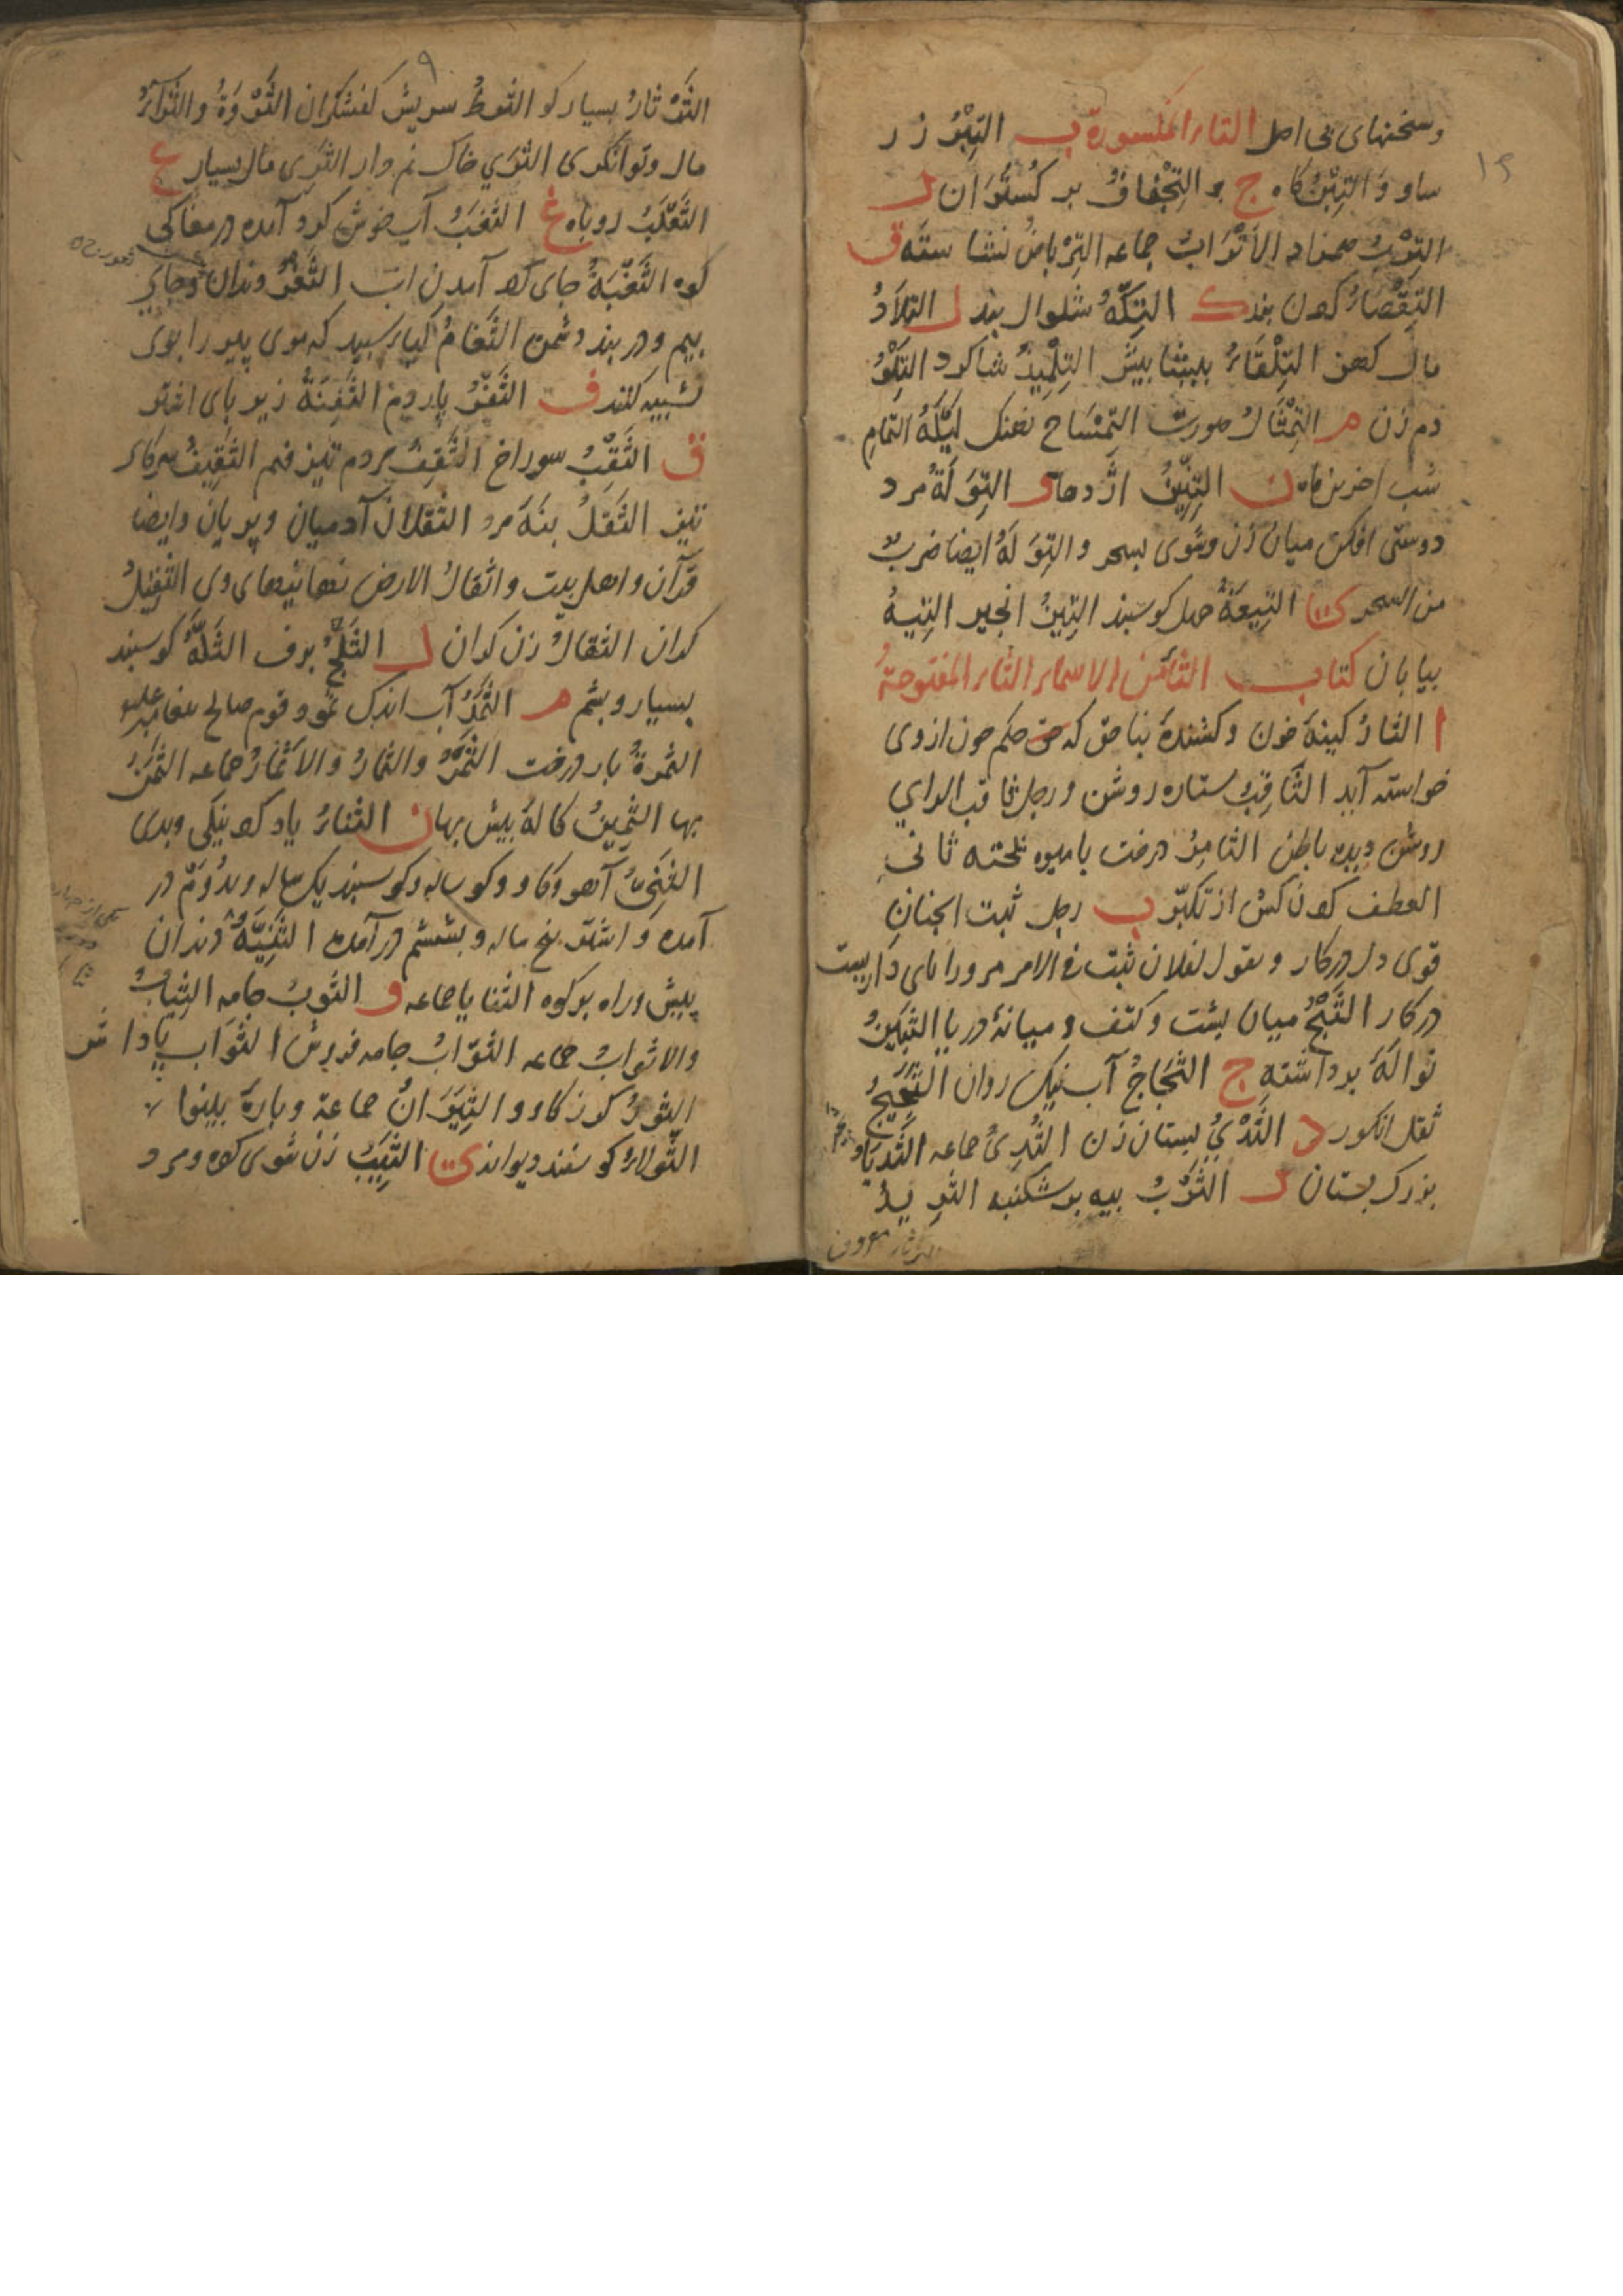 وسخنهای بی اصل التاء المکسورة ب التِبْرُ زر
ساو وَالتِبْنُ کاه ج و التِجْفافُ بر کُستُوَان ر
التِرْبُ همزاد الاَتْرَابُ جماعه التِرْیاضُ نشاسته ق
التِقْصَارُ کردن بند ک التِکّهُ شلوار بند ل التِلاَدُ
مال کهن التِلْقَاءُ پیش التِلْمِیذُ شاکرد التِلْوُ
دم زن م التِمْثَالُ صورت التِمْسَاح نهنک لَیْلَةُ التمامِ
شب اخرین ماه ن التِنِّینُ اژدها و التِوَلَةُ مرد
دوستی افکن میان زن وشوی بسحر والتِوَلَةُ ایضا ضربٌ
من السحر ی التِیعَةُ چهل کوسبند التِینُ انجیر التِیهُ
بیابان کتاب الثاء من الاسماء الثاء المفتوحةُ
ا الثارُ کینهٔ خون و کشندهٔ بناحق که حق حکم خون ازوی
خواسته آید الثَاقِبُ ستاره روشن و رجل ثاقب الراي
روشن دیده باطن الثامِرُ درخت با میوه پخته ثانی
العطف کردن کش از تکبّر ب رجل ثبت الجنانِ
قوی دل در کار و یقول لفلان ثبت فی الامر مرورا پای داریست
در کار الثَبَجُ میان پشت و کتف و میانهٔ دریا الثُبَینُ
نوالهٔ برداشته ج الثَجَاجُ آب نیک روان الثَجِیرُ
ثقل انکور د الثَدْيُ پستان زن الثُدِیُّ جماعه الثَدْیَاءُ
بزرک پستان ر الثَرْبُ پیه بر شکنبه الثرِیدُ
الثَرْثارُ بسیار کو الثرطُ سریش کفشکران الثَرْوَةُ والثَرَاءُ
مال وتوانکری الثَرَي خاک نم دار الثَرِی مال بسیار ع
الثَعْلَبُ روباه غ الثَغَبُ آب خوش کرد آمده در مغاکی
کوه الثَغْبَةُ جای کرد آمدن اب الثَغْرُ دندان وجای
بیم و دربند دشمن الثَغَامُ کیاء سپید که موی پیر را بوی
تشبیه کنند ف الثَفَرُ پاردم الثَفِنَةُ زیر پای اشتر
ق الثَقْبُ سوراخ الثَقِفُ مردم تیز فهم الثَقِیفُ سرکاء
تیز الثَقَلُ بنهٔ مرد الثقلان آدمیان و پریان وایضا
قرآن و اهل بیت و اثقالُ الارض نهانیهای وی الثقِیلُ
کران الثقالُ زن کران ل الثَلْجُ برف الثَلّةُ کوسبند
بسیار و پشم م الثَمَدُ آب اندک ثمود قوم صالح پیغامبر علیه
الثمرةُ بار درخت الثَمَرُ والثمارُ والاَثْمَارُ جماعه الثَمَنُ
بها الثَمِینُ کالهٔ بیش بها ن الثناءُ یاد کرد نیکی وبدی
الثَنِیُّ آهو وکاو وکوساله وکوسبند یک ساله وبدُوَمْ در
آمده و اشتر پنج ساله و بششم در آمده الثَنِیَّةُ دندان
پیش وراه بر کوه الثنایا جماعه و الثوبُ جامه الثِیَابُ
والاثوابُ جماعه الثوَّابُ جامه فروش الثَوَاب پاداش
الثورُ کوزن کاو و الثِیَرَانُ جماعة وپارهٔ پینوا
الثَولاءُ کوسفند دیوانه ی الثَیِّبُ زن شوی کرده ومرد